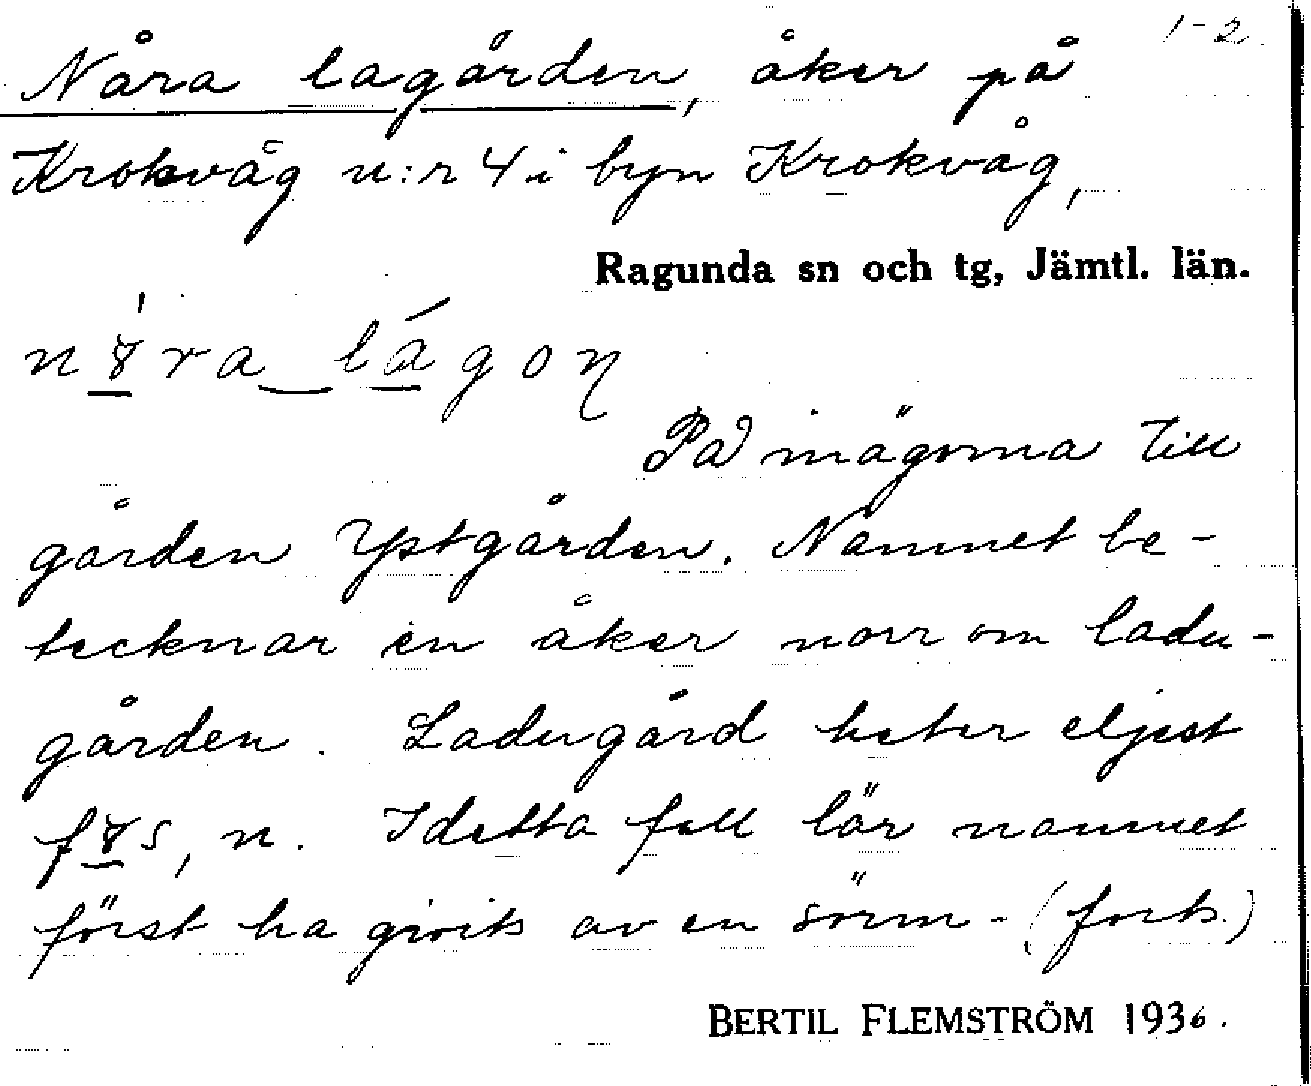 1-2.
Nåra lagården, åker på
Krokvåg n:r 4 i byn Krokvåg,
Ragunda sn och tg, Jämtl. län.
På inägorna till
gården Ystgården. Namnet be-
tecknar en åker norr om ladu-
gården. Ladugård heter eljest
n. I detta fall lär namnet
först ha givits av en sörm- (forts.)
BERTIL FLEMSTRÖM 1936.